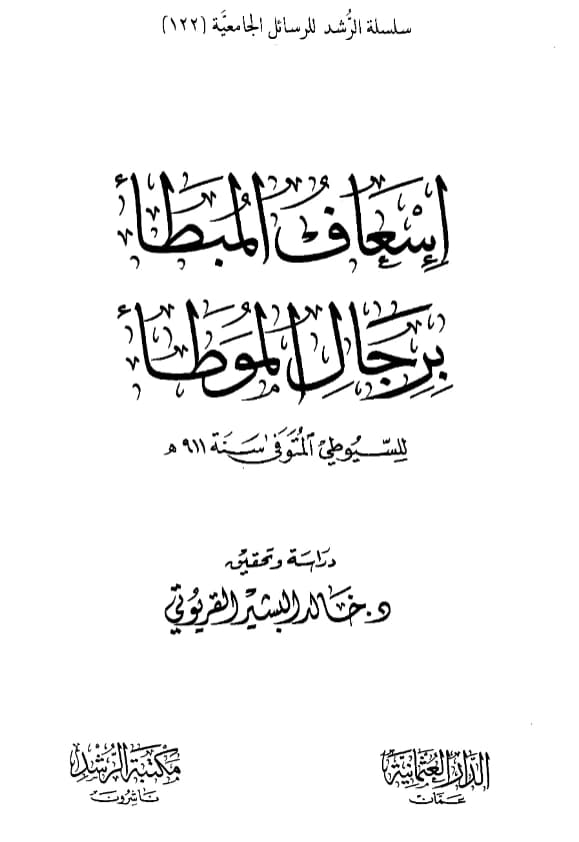 سلسلة الرُّشد للرسائل الجامعيَّة (١٢٢)
إِسْعَافُ المُبَطَّأ
بِرِجَالِ المُوَطَّأ
للسّيُوطيّ المُتَوَفىٰ سَنَة ٩١١ هـ
دراسة وتحقيق
د. خَالد البشيْر القريُوتي
الدَّارُ العُثمَانِيَّة
عَمَّان
مَكتَبة الرُّشدِ
نَاشِرُون